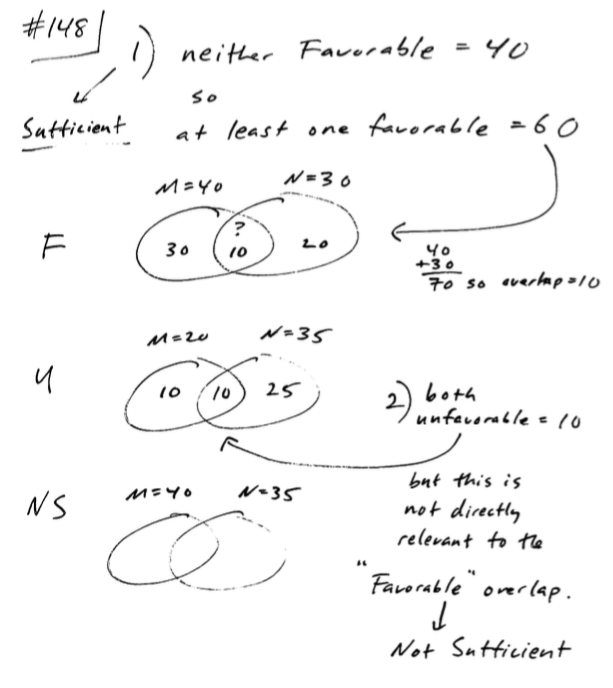 #148
1) neither Favorable = 40
so
Sufficient
at least one favorable = 60
M=40 N=30
F
30
?
10
20
40
+30
70 so overlap=10
M=20 N=35
U
10 10 25
2) both
unfavorable = 10
NS
M=40 N=35
but this is
not directly
relevant to the
"Favorable" overlap.
Not Sufficient